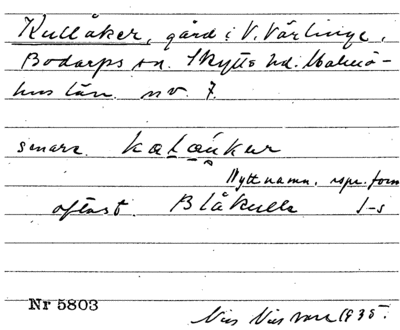 Kullåker, gård i V. Värlinge,
Bodarps sn. Skytts hd. Malmö-
hus län. nv. 7.
snarx.
Nytt namn. rspr. form
oftast. Blåkulla I-s
Nr 5803
Nils Nilsson 1935.